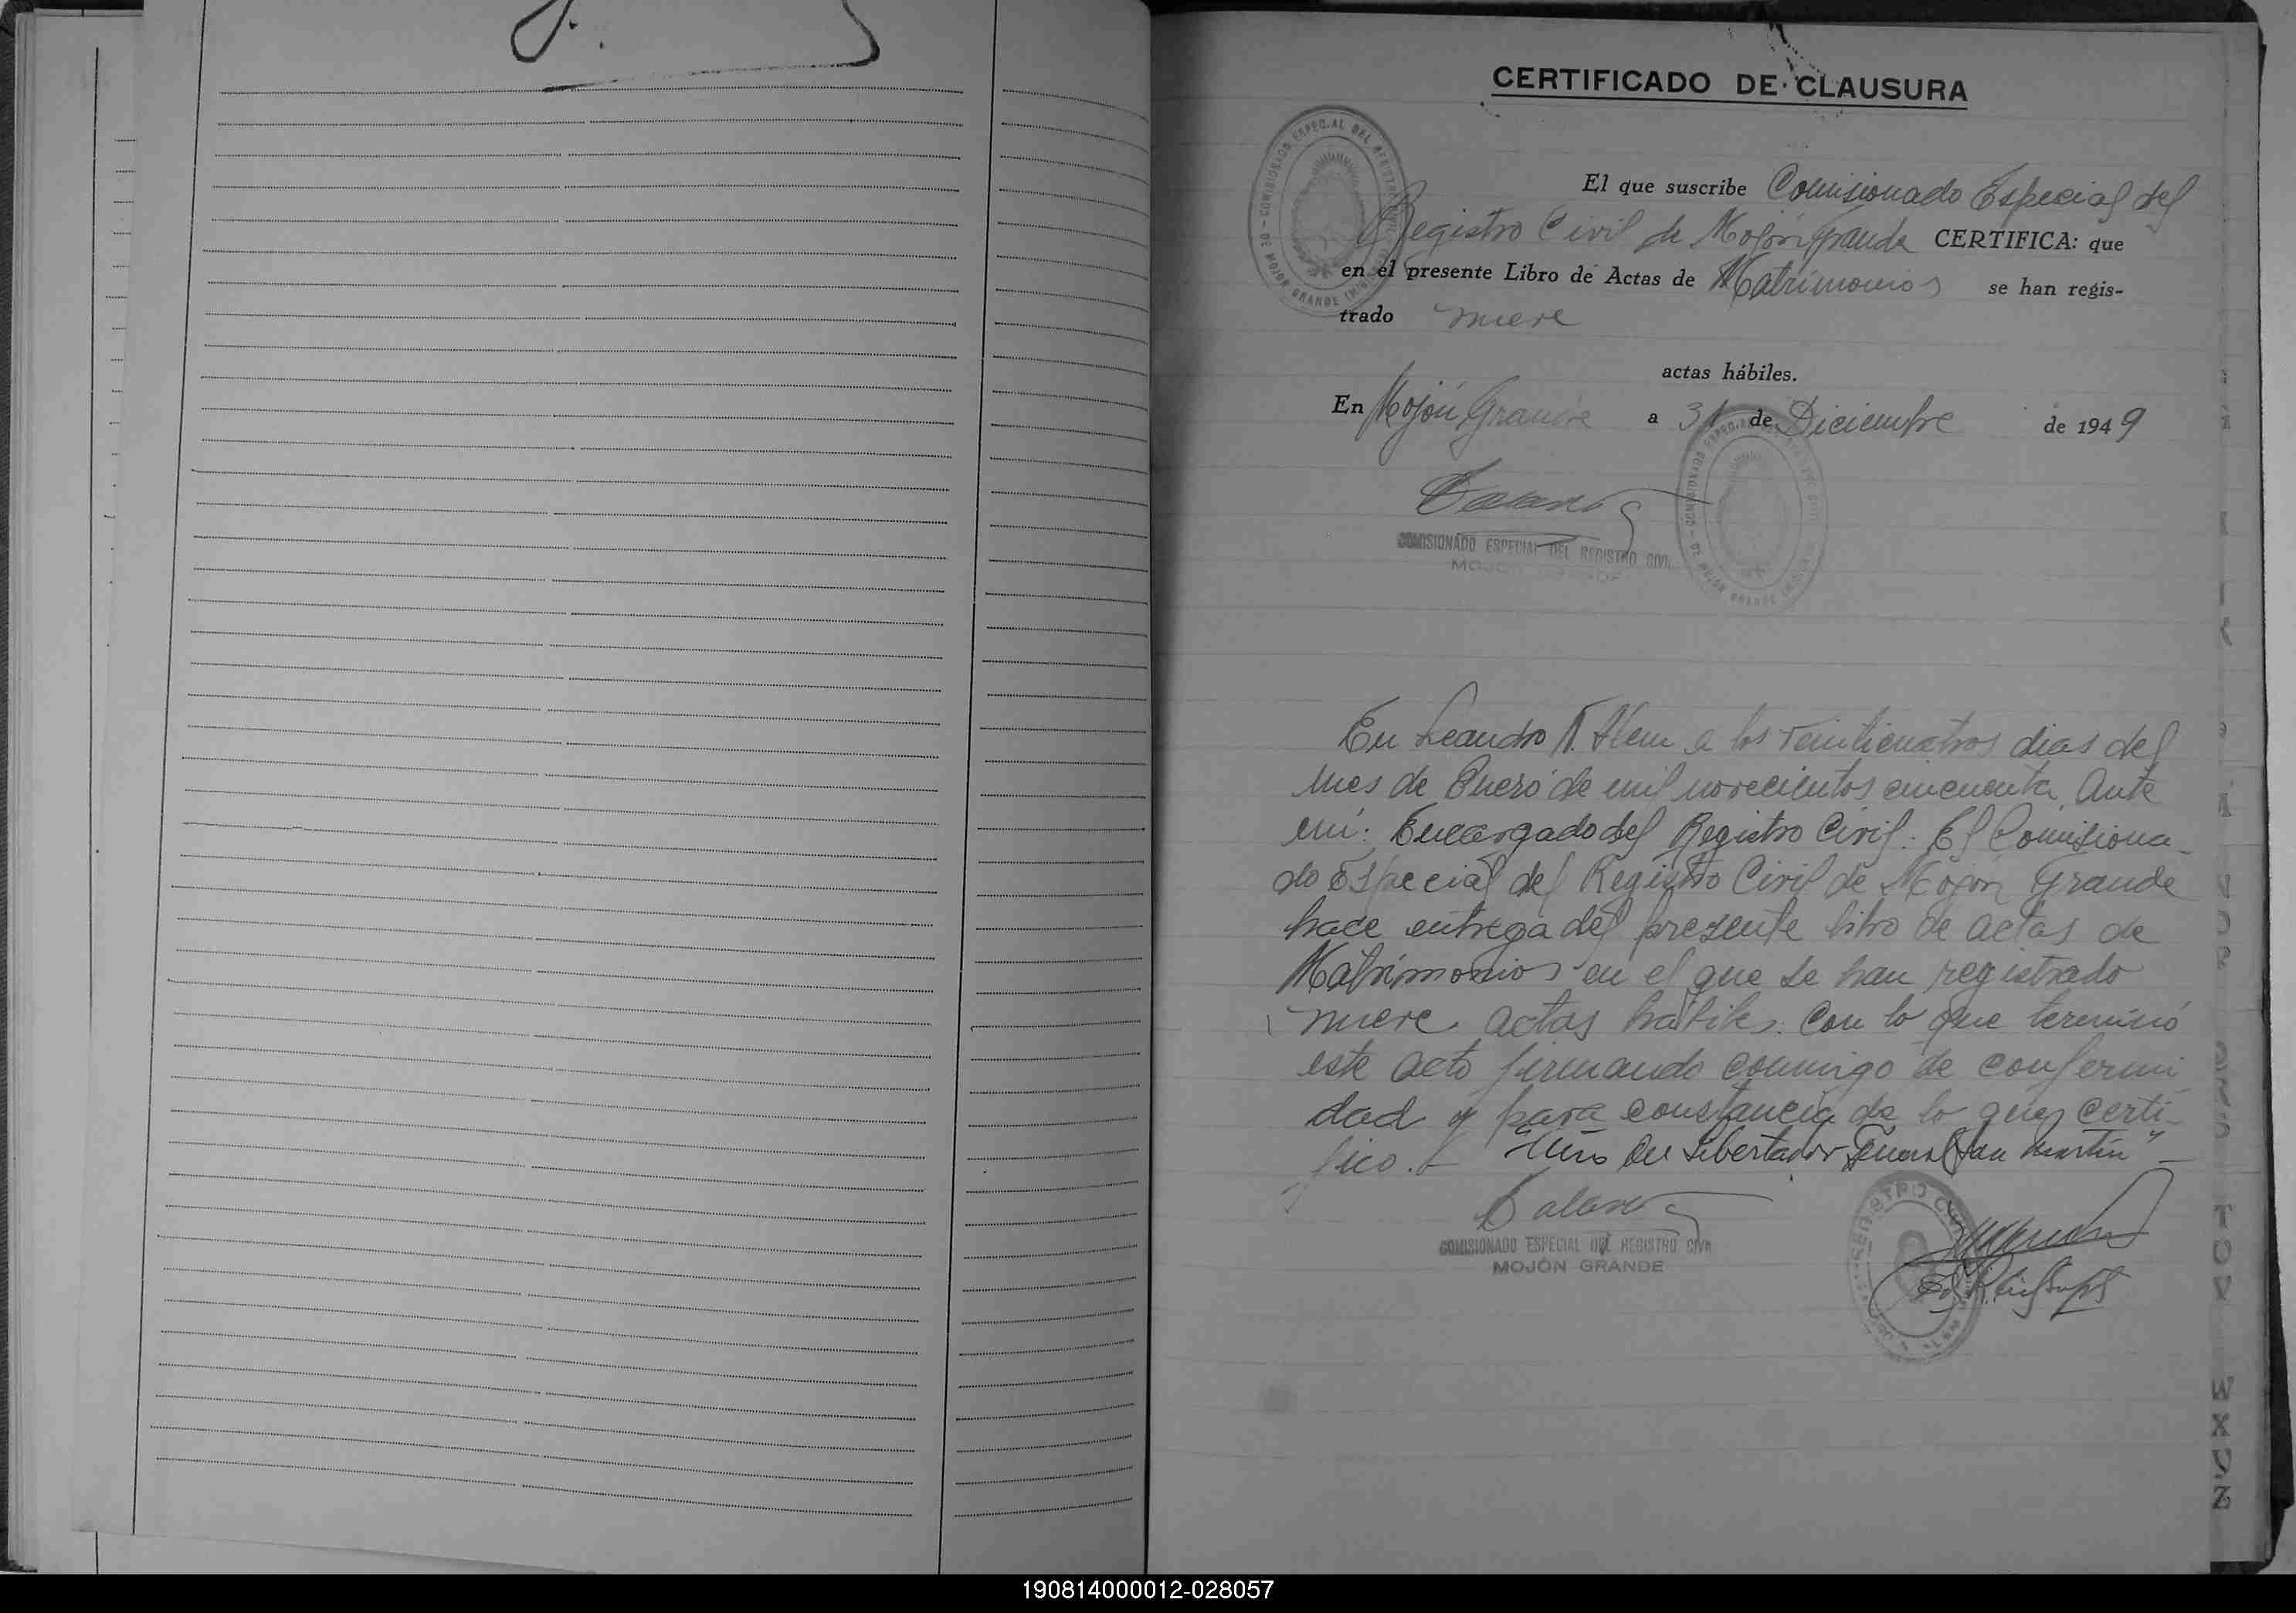 CERTIFICADO DE CLAUSURA
El que suscribe Comisionado Especial del
Registro Civil de Mojón Grande CERTIFICA: que
en el presente Libro de Actas de Matrimonios se han regis-
trado nueve
actas hábiles.
En Mojón Grande a 31 de Diciembre de 1949
COMISIONADO ESPECIAL DEL REGISTRO CIVIL
MOJON GRANDE
En Leandro N. Alem a los veinticuatros dias del
mes de Enero de mil novecientos cincuenta. Ante
mí: Encargado del Registro Civil: El Comisiona-
do Especial del Registro Civil de Mojón Grande
hace entrega del presente libro de actas de
Matrimonios en el que se han registrado
nueve actas hábiles. Con lo que terminó
este acto firmando conmigo de conformi
dad y para constancia de lo que certi-
fico. "Año del Libertador General San Martín"
COMISIONADO ESPECIAL DEL REGISTRO CIVIL
MOJÓN GRANDE
190814000012-028057